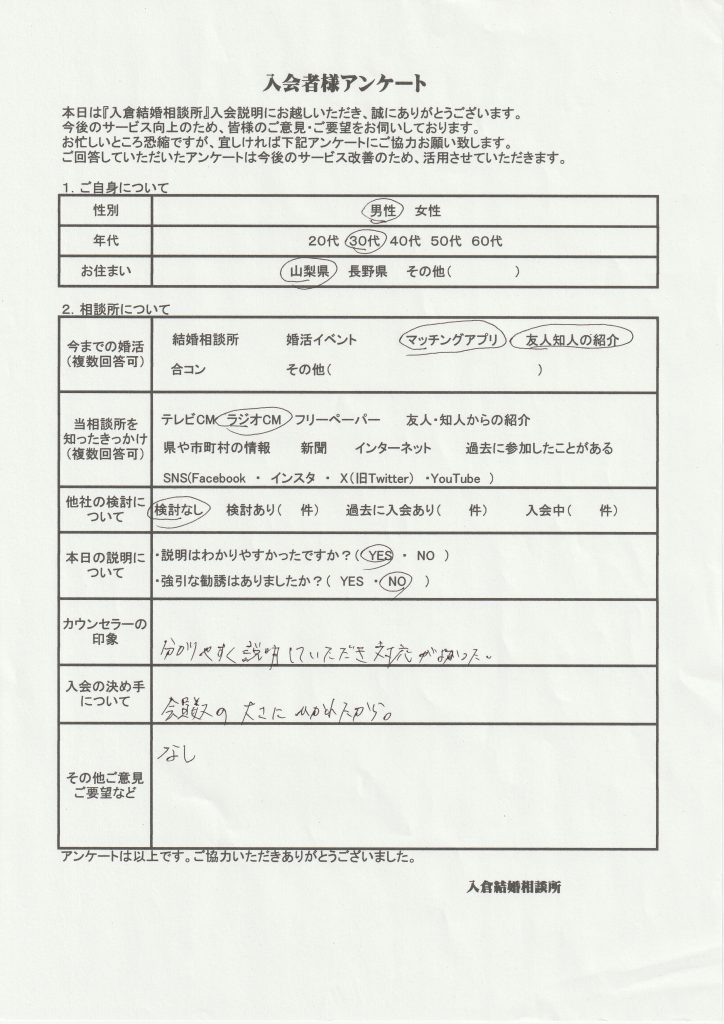 入会者様アンケート
本日は『入倉結婚相談所』入会説明にお越しいただき、誠にありがとうございます。
今後のサービス向上のため、皆様のご意見・ご要望をお伺いしております。
お忙しいところ恐縮ですが、宜しければ下記アンケートにご協力お願い致します。
ご回答していただいたアンケートは今後のサービス改善のため、活用させていただきます。
1. ご自身について
性別 男性 女性
年代 20代 30代 40代 50代 60代
お住まい 山梨県 長野県 その他( )
2. 相談所について
今までの婚活
(複数回答可)
結婚相談所 婚活イベント マッチングアプリ 友人知人の紹介
合コン その他( )
当相談所を
知ったきっかけ
(複数回答可)
テレビCM ラジオCM フリーペーパー 友人・知人からの紹介
県や市町村の情報 新聞 インターネット 過去に参加したことがある
SNS(Facebook ・ インスタ ・ X(旧Twitter) ・YouTube )
他社の検討に
ついて
検討なし 検討あり( 件) 過去に入会あり( 件) 入会中( 件)
本日の説明に
ついて
・説明はわかりやすかったですか?( YES ・ NO )
・強引な勧誘はありましたか?( YES ・ NO )
カウンセラーの
印象
分かりやすく説明していただき対応がよかった。
入会の決め手
について
会員数の大さにひかれたから。
その他ご意見
ご要望など
なし
アンケートは以上です。ご協力いただきありがとうございました。
入倉結婚相談所